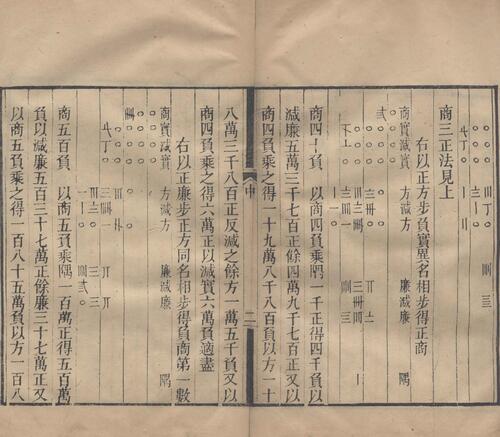 商三正法見上
右以正方步負實異名相步得正商
商實減實 方減方 廉減廉 隅
商四十負 以商四負乘隅一千正得四千負以
減廉五萬三千七百正餘四萬九千七百正又以
商四負乘之得一十九萬八千八百負以方一十
中 二
八萬三千八百正反減之餘方一萬五千負又以
商四負乘之得六萬正以減實六萬負適盡
右以正廉步正方同名相步得負商第一數
商實減實 方減方 廉減廉 隅
商五百負 以商五負乘隅一百萬正得五百萬
負以減廉五百三十七萬正餘廉三十七萬正又
以商五負乘之得一百八十五萬負以方一百八